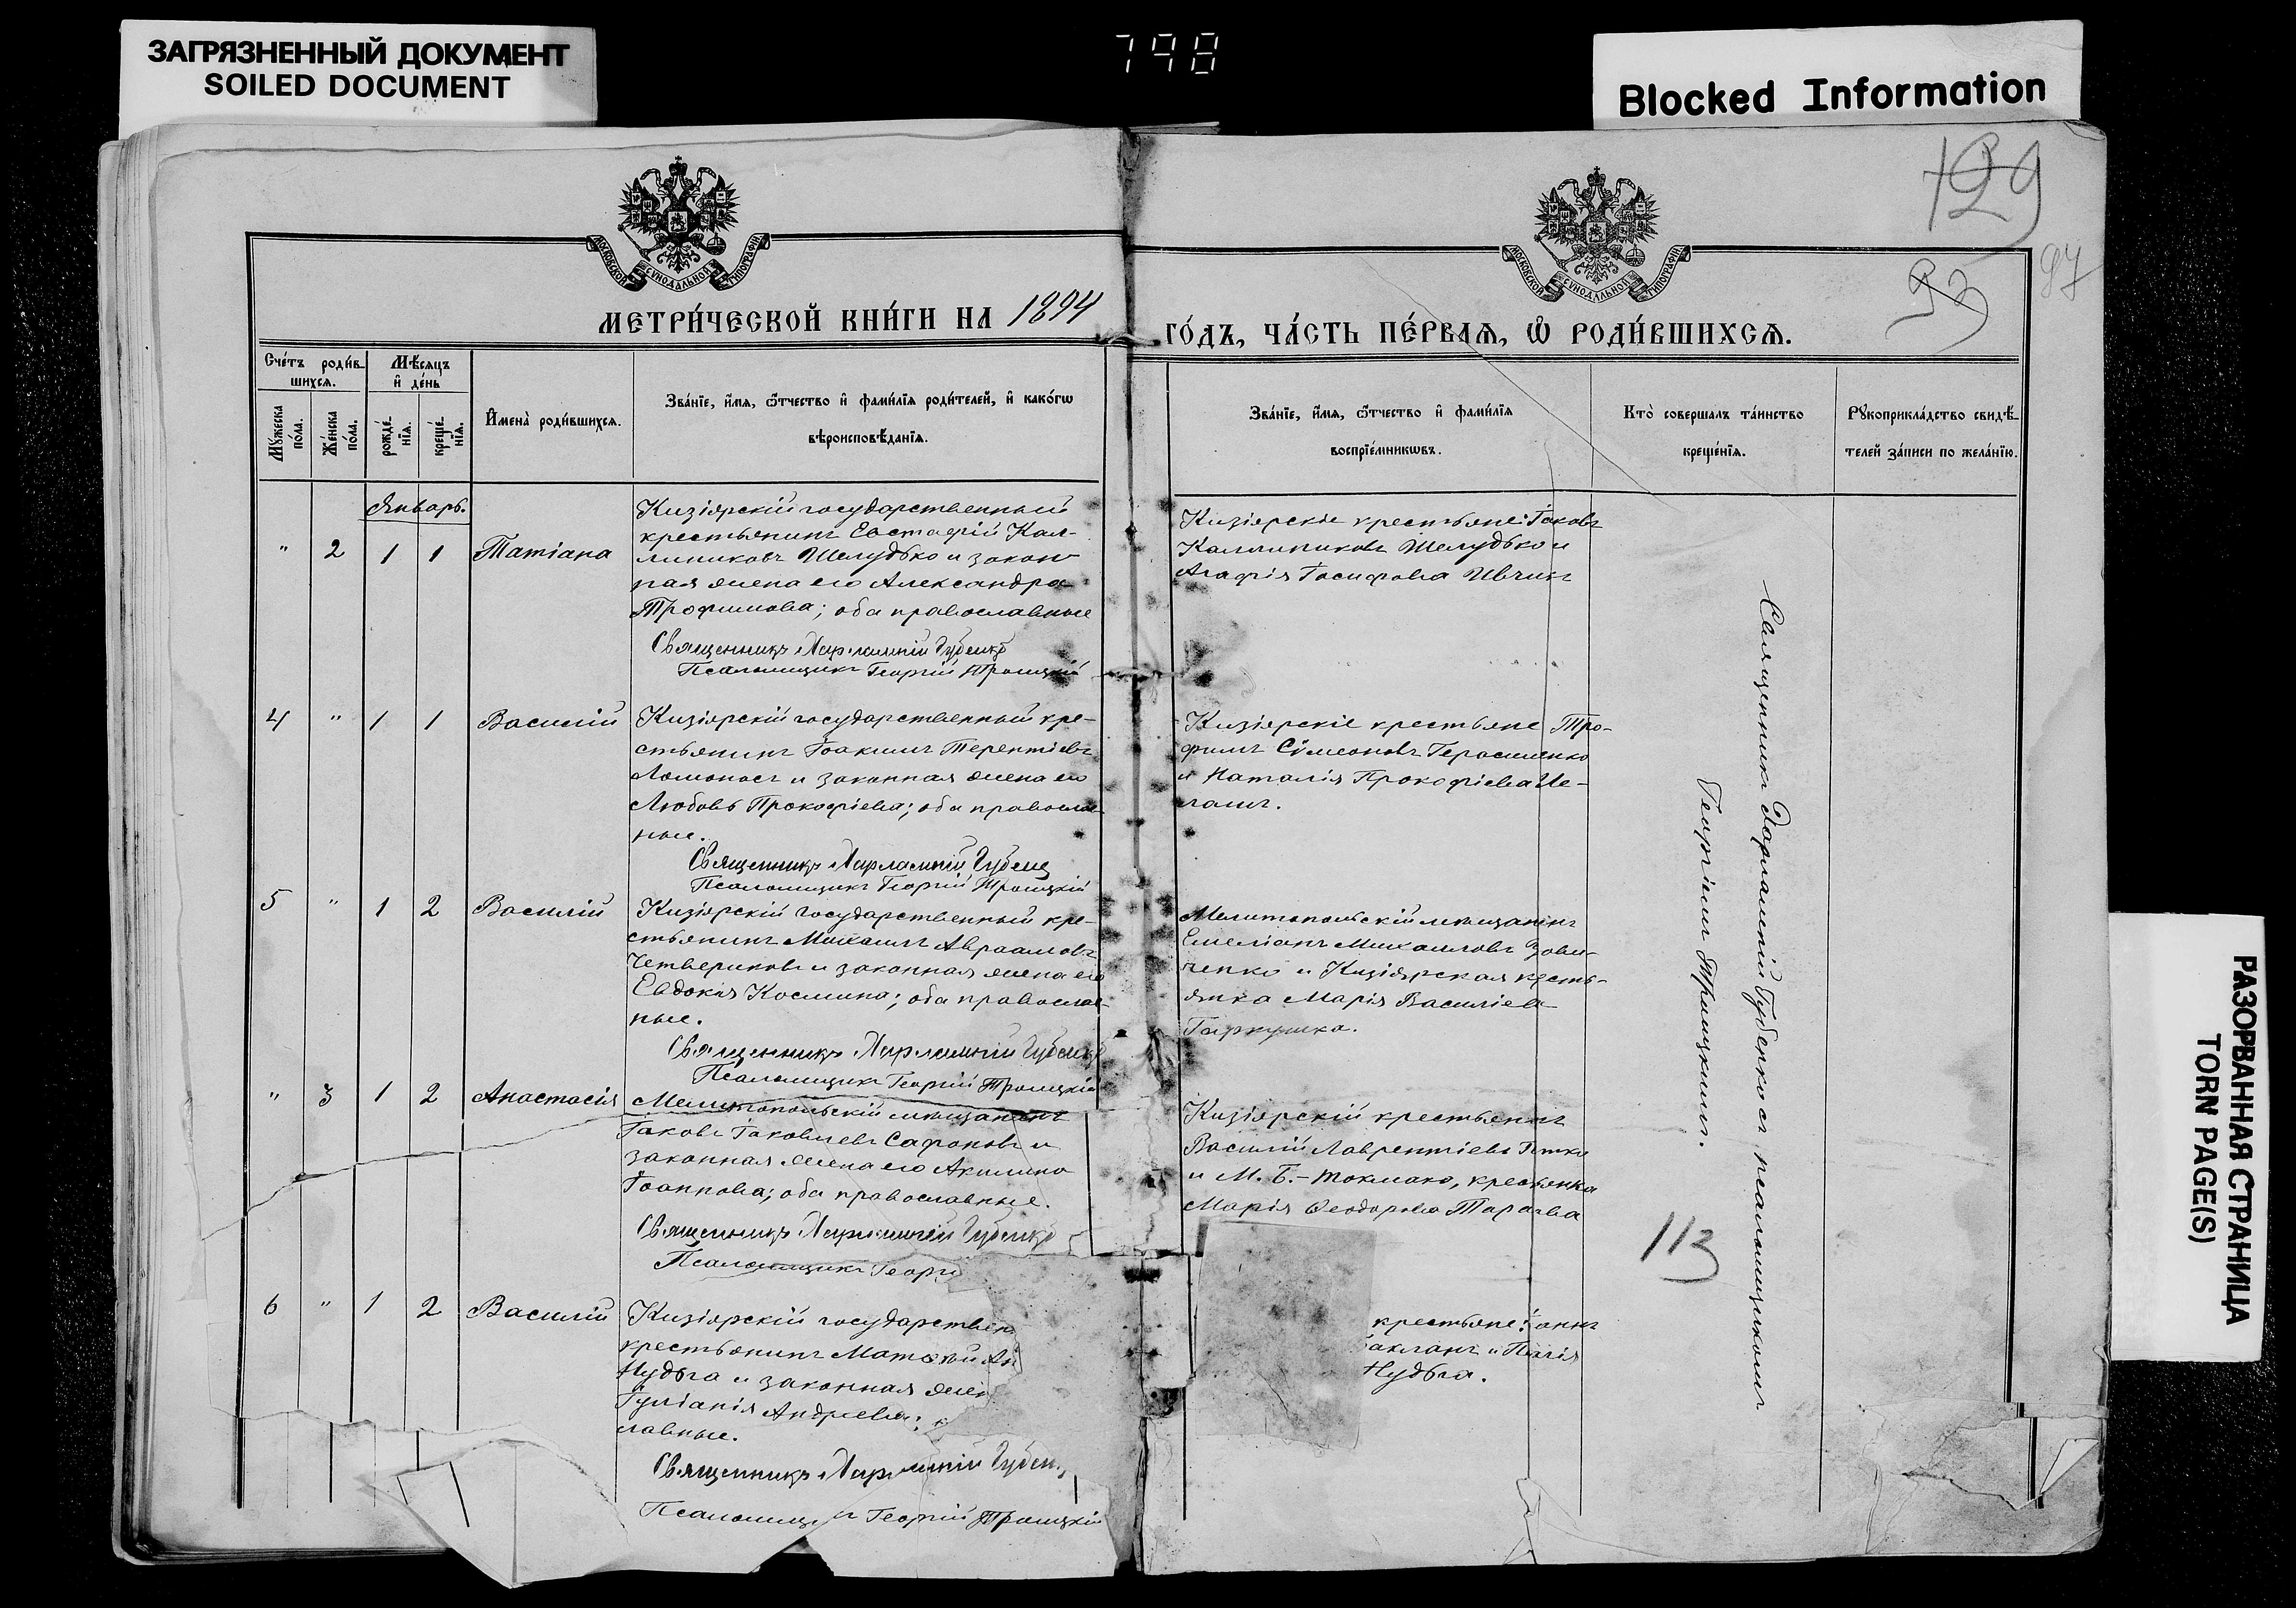 ЗАГРЯЗНЕННЫЙ ДОКУМЕНТ
SOILED DOCUMENT
798
Blocked Information
129
93
97
МОСКОВСКОЙ СѴНОДАЛЬНОЙ ТИПОГРАФІИ
МОСКОВСКОЙ СѴНОДАЛЬНОЙ ТИПОГРАФІИ
МЕТРИ́ЧЕСКОЙ КНИ́ГИ НА 1894
ГО́ДЪ, ЧА́СТЬ ПЕ́РВАЯ, Ѡ РОДИ́ВШИХСЯ.
Сче́тъ роди́в-
шихся.
Мѣ́сяцъ
и де́нь
Му́жеска
по́ла.
Же́нска
по́ла.
рожде́-
нія.
креще́-
нія.
Имена̀ роди́вшихся.
Зва́нїе, и́мя, ѻ́тчество и фами́лїя роди́телей, и како́гѡ
вѣроисповѣ́данїя.
Зва́нїе, и́мя, ѻ́тчество и фами́лїя
воспрїе́мникѡвъ.
Кто̀ соверша́лъ та́инство
креще́нїя.
Рꙋкоприкла́дство свидѣ́-
телей за́писи по жела́нїю.
Январь.
" 2 1 1 Татіана
Кизіярскій государственный
крестьянинъ Евстафій Кал-
линиковъ Шелудько и закон-
ная жена его Александра
Трофимова; оба православные
Священникъ Харлампій Губенко
Псаломщикъ Георгій Троицкій
Кизіярскіе крестьяне: Іаковъ
Каллиниковъ Шелудько и
Агафія Іосифова Ивчик
4 " 1 1 Василій
Кизіярскій государственный кре-
стьянинъ Іоакимъ Терентіевъ
Ломоносъ и законная жена его
Любовь Прокофіева; оба православ-
ные.
Священникъ Харлампій Губенко
Псаломщикъ Георгій Троицкій
Кизіярскіе крестьяне Тро-
фимъ Сімеоновъ Герасименко
и Наталія Прокофіева
5 " 1 2 Василій
Кизіярскій государственный кре-
стьянинъ Михаилъ Авраамовъ
Четвериковъ и законная жена его
Евдокія Космина; оба православ-
ные.
Священникъ Харлампій Губенко
Псаломщикъ Георгій Троицкій
Мелитопольскій мѣщанинъ
Емеліанъ Михаиловъ
ченко и Кизіярская кресть-
янка Марія Василіева
Гаркушка.
" 3 1 2 Анастасія
Мелитопольскій мѣщанинъ
Іаковъ Іаковлевъ Сафоновъ и
законная жена его Акилина
Іоаннова; оба православные.
Священникъ Харлампій Губенко
Псаломщикъ Георгі
Кизіярскій крестьянинъ
Василій Лаврентіевъ
и М. Б.-Токмака, крестьянка
Марія Ѳеодорова
6 " 1 2 Василій
Кизіярскій государствен
крестьянинъ Матѳей Ан
Нудьга и законная жен
Іуліанія Андреева;
лавные.
Священникъ Харлампій Губен
Псаломщикъ Георгій Троицкій
крестьяне: Іоаннъ
акланъ и
Нудьга.
Священникъ Харлампій Губенко съ псаломщикомъ
Георгіемъ Троицкимъ.
113
РАЗОРВАННАЯ СТРАНИЦА
TORN PAGE(S)